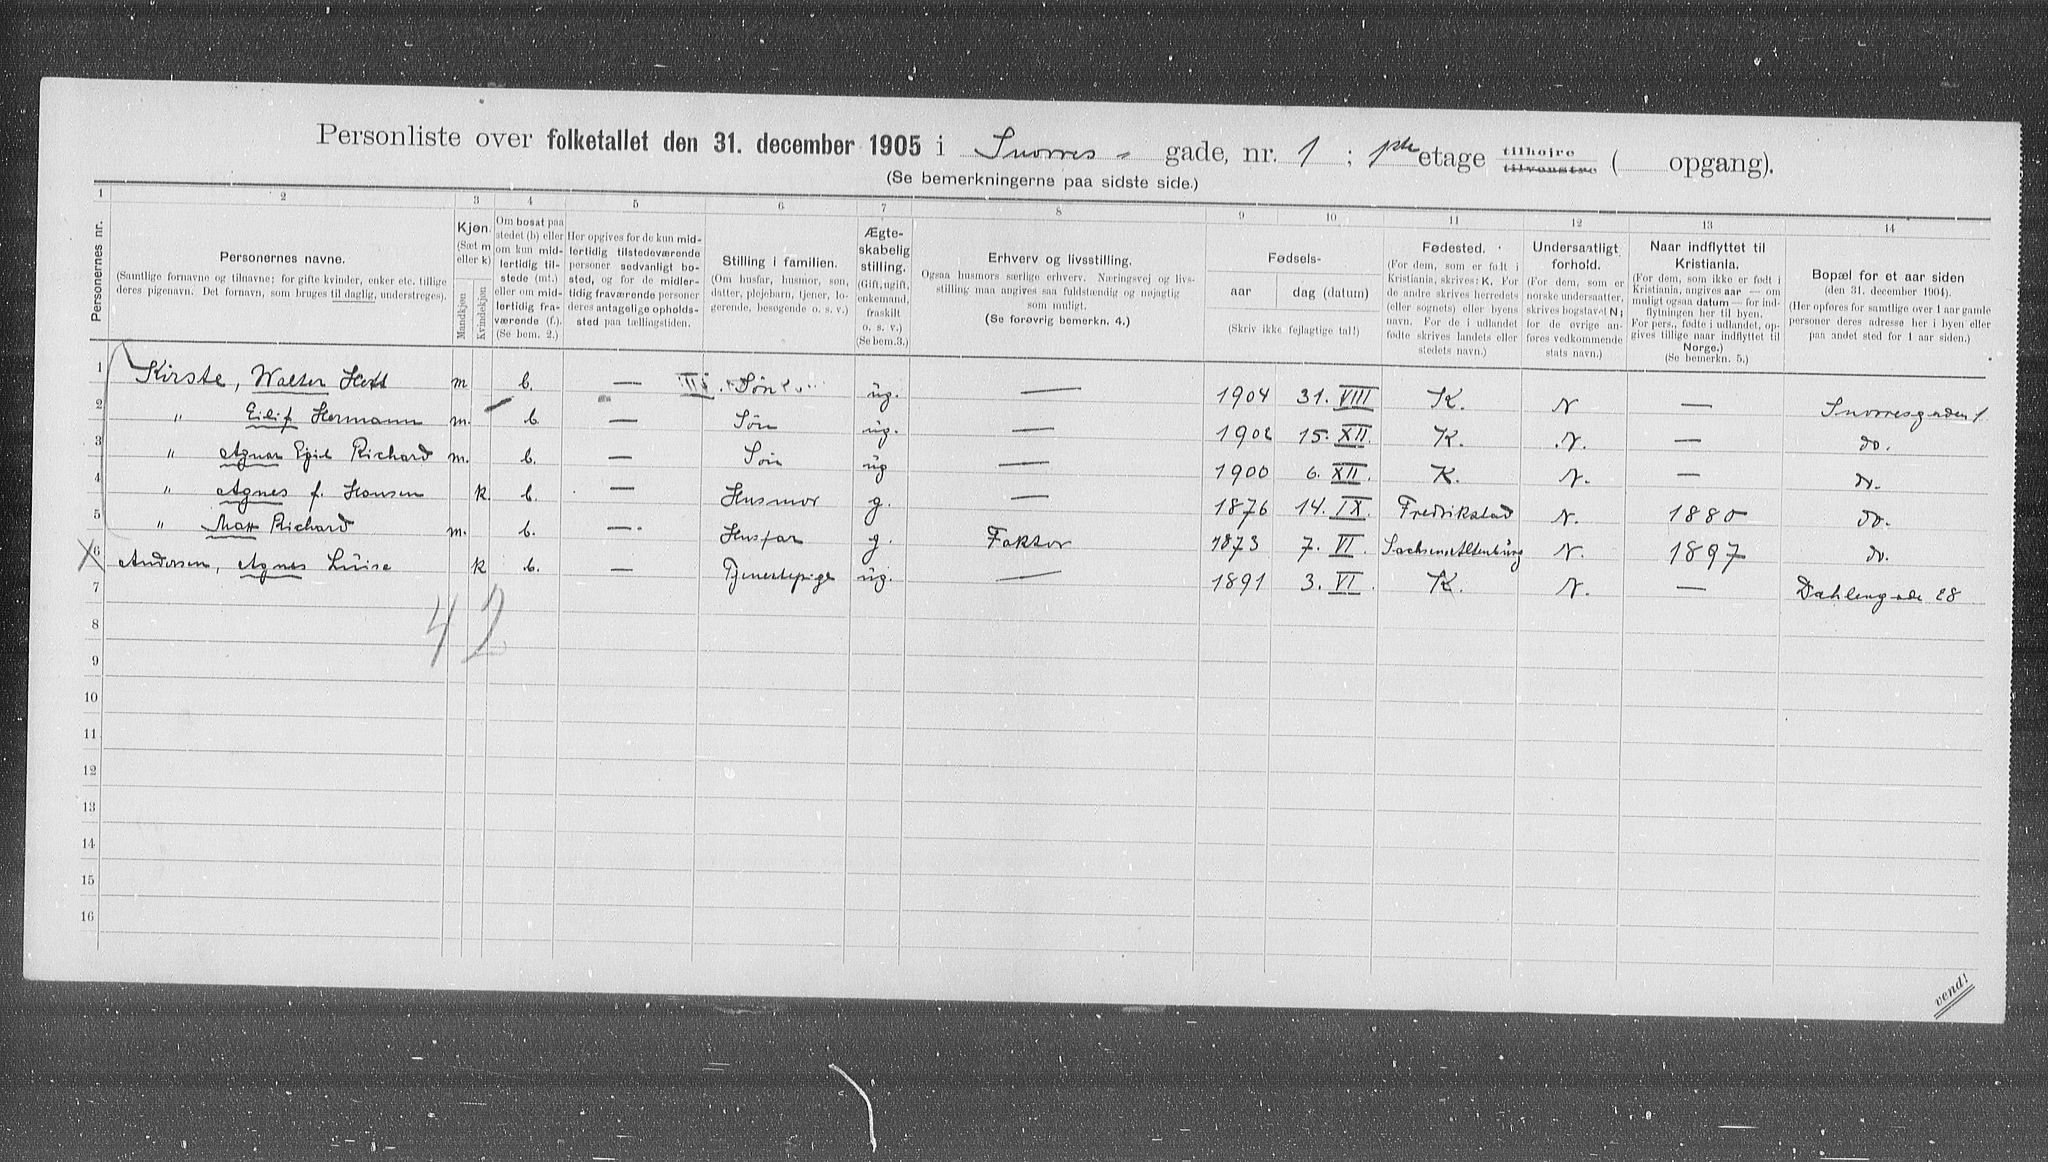 Personliste over folketallet den 31. december 1905 i Snorres gade, nr. 1 ; 1ste etage tilhøire tilvenstre ( opgang).
(Se bemerkningerne paa sidste side.)
1 2 3 4 5 6 7 8 9 10 11 12 13 14
Personernes nr.
Personernes navne.
(Samtlige fornavne og tilnavne; for gifte kvinder, enker etc. tillige deres pigenavn. Det fornavn, som bruges til daglig, understreges).
Kjøn.
(Sæt m eller k)
Mandkjøn
Kvindekjøn
Om bosat paa stedet (b) eller om kun midlertidig tilstede (mt.) eller om midlertidig fraværende (f.)
(Se bem. 2.)
Her opgives for de kun midlertidig tilstedeværende personer sedvanligt bosted, og for de midlertidig fraværende personer deres antagelige opholdssted paa tællingstiden.
Stilling i familien.
(Om husfar, husmor, søn, datter, plejebarn, tjener, logerende, besøgende o. s. v.)
Ægteskabelig stilling.
(Gift, ugift, enkemand, fraskilt o. s. v.)
(Se bem.3.)
Erhverv og livsstilling.
Ogsaa husmors særlige erhverv. Næringsvej og livsstilling maa angives saa fuldstændig og nøjagtig som muligt.
(Se forøvrig bemerkn. 4.)
Fødsels-
aar
dag (datum)
(Skriv ikke fejlagtige tal!)
Fødested.
(For dem, som er født i Kristiania, skrives: K. For de andre skrives herredets (eller sognets) eller byens navn. For de i udlandet fødte skrives landets eller stedets navn.)
Undersaatligt forhold.
(For dem, som er norske undersaatter, skrives bogstavet N; for de øvrige anføres vedkommende stats navn.)
Naar indflyttet til Kristiania.
(For dem, som ikke er født i Kristiania, angives aar — om muligt ogsaa datum — for indflytningen her til byen. For pers., fødte i udlandet, opgives tillige naar indflyttet til Norge.)
(Se bemerkn. 5.)
Bopæl for et aar siden
(den 31. december 1904).
(Her opføres for samtlige over 1 aar gamle personer deres adresse her i byen eller paa andet sted for 1 aar siden.)
1 Kirste, Walter m b. — Søn ug. — 1904 31. VIII K. N — Snorresgaden 1
2 " Eilif Hermann m. b — Søn ug. — 1902 15. XII. K. N. — do.
3 " Agnar Egil Richard m. b. — Søn ug — 1900 6. XII. K. N. — do.
4 " Agnes f. Hansen k. b. — Husmor g. — 1876 14. IX. Fredrikstad N. 1880 do.
5 " Max Richard m. b. — Husfar g. Faktor 1873 7. VI. Sachsen-Altenburg N. 1897 do.
6 Andersen, Agnes Luise k b. — Tjenestepige ug. — 1891 3. VI K. N. — Dahlengade 28
7
42
8
9
10
11
12
13
14
15
16
vend!